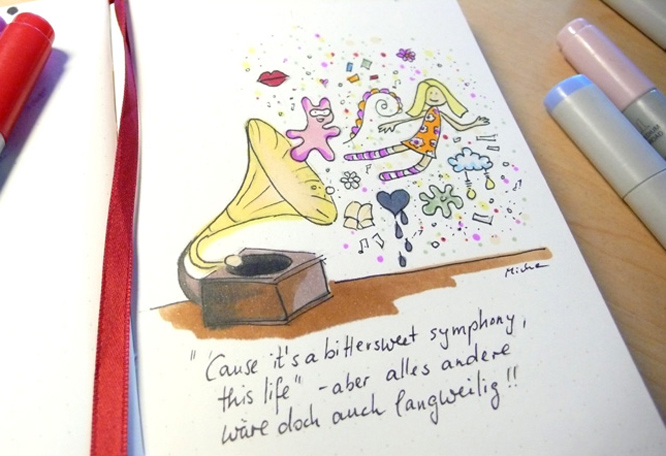 Miche
"'Cause it's a bittersweet symphony,
this life" - aber alles andere
wäre doch auch langweilig!!